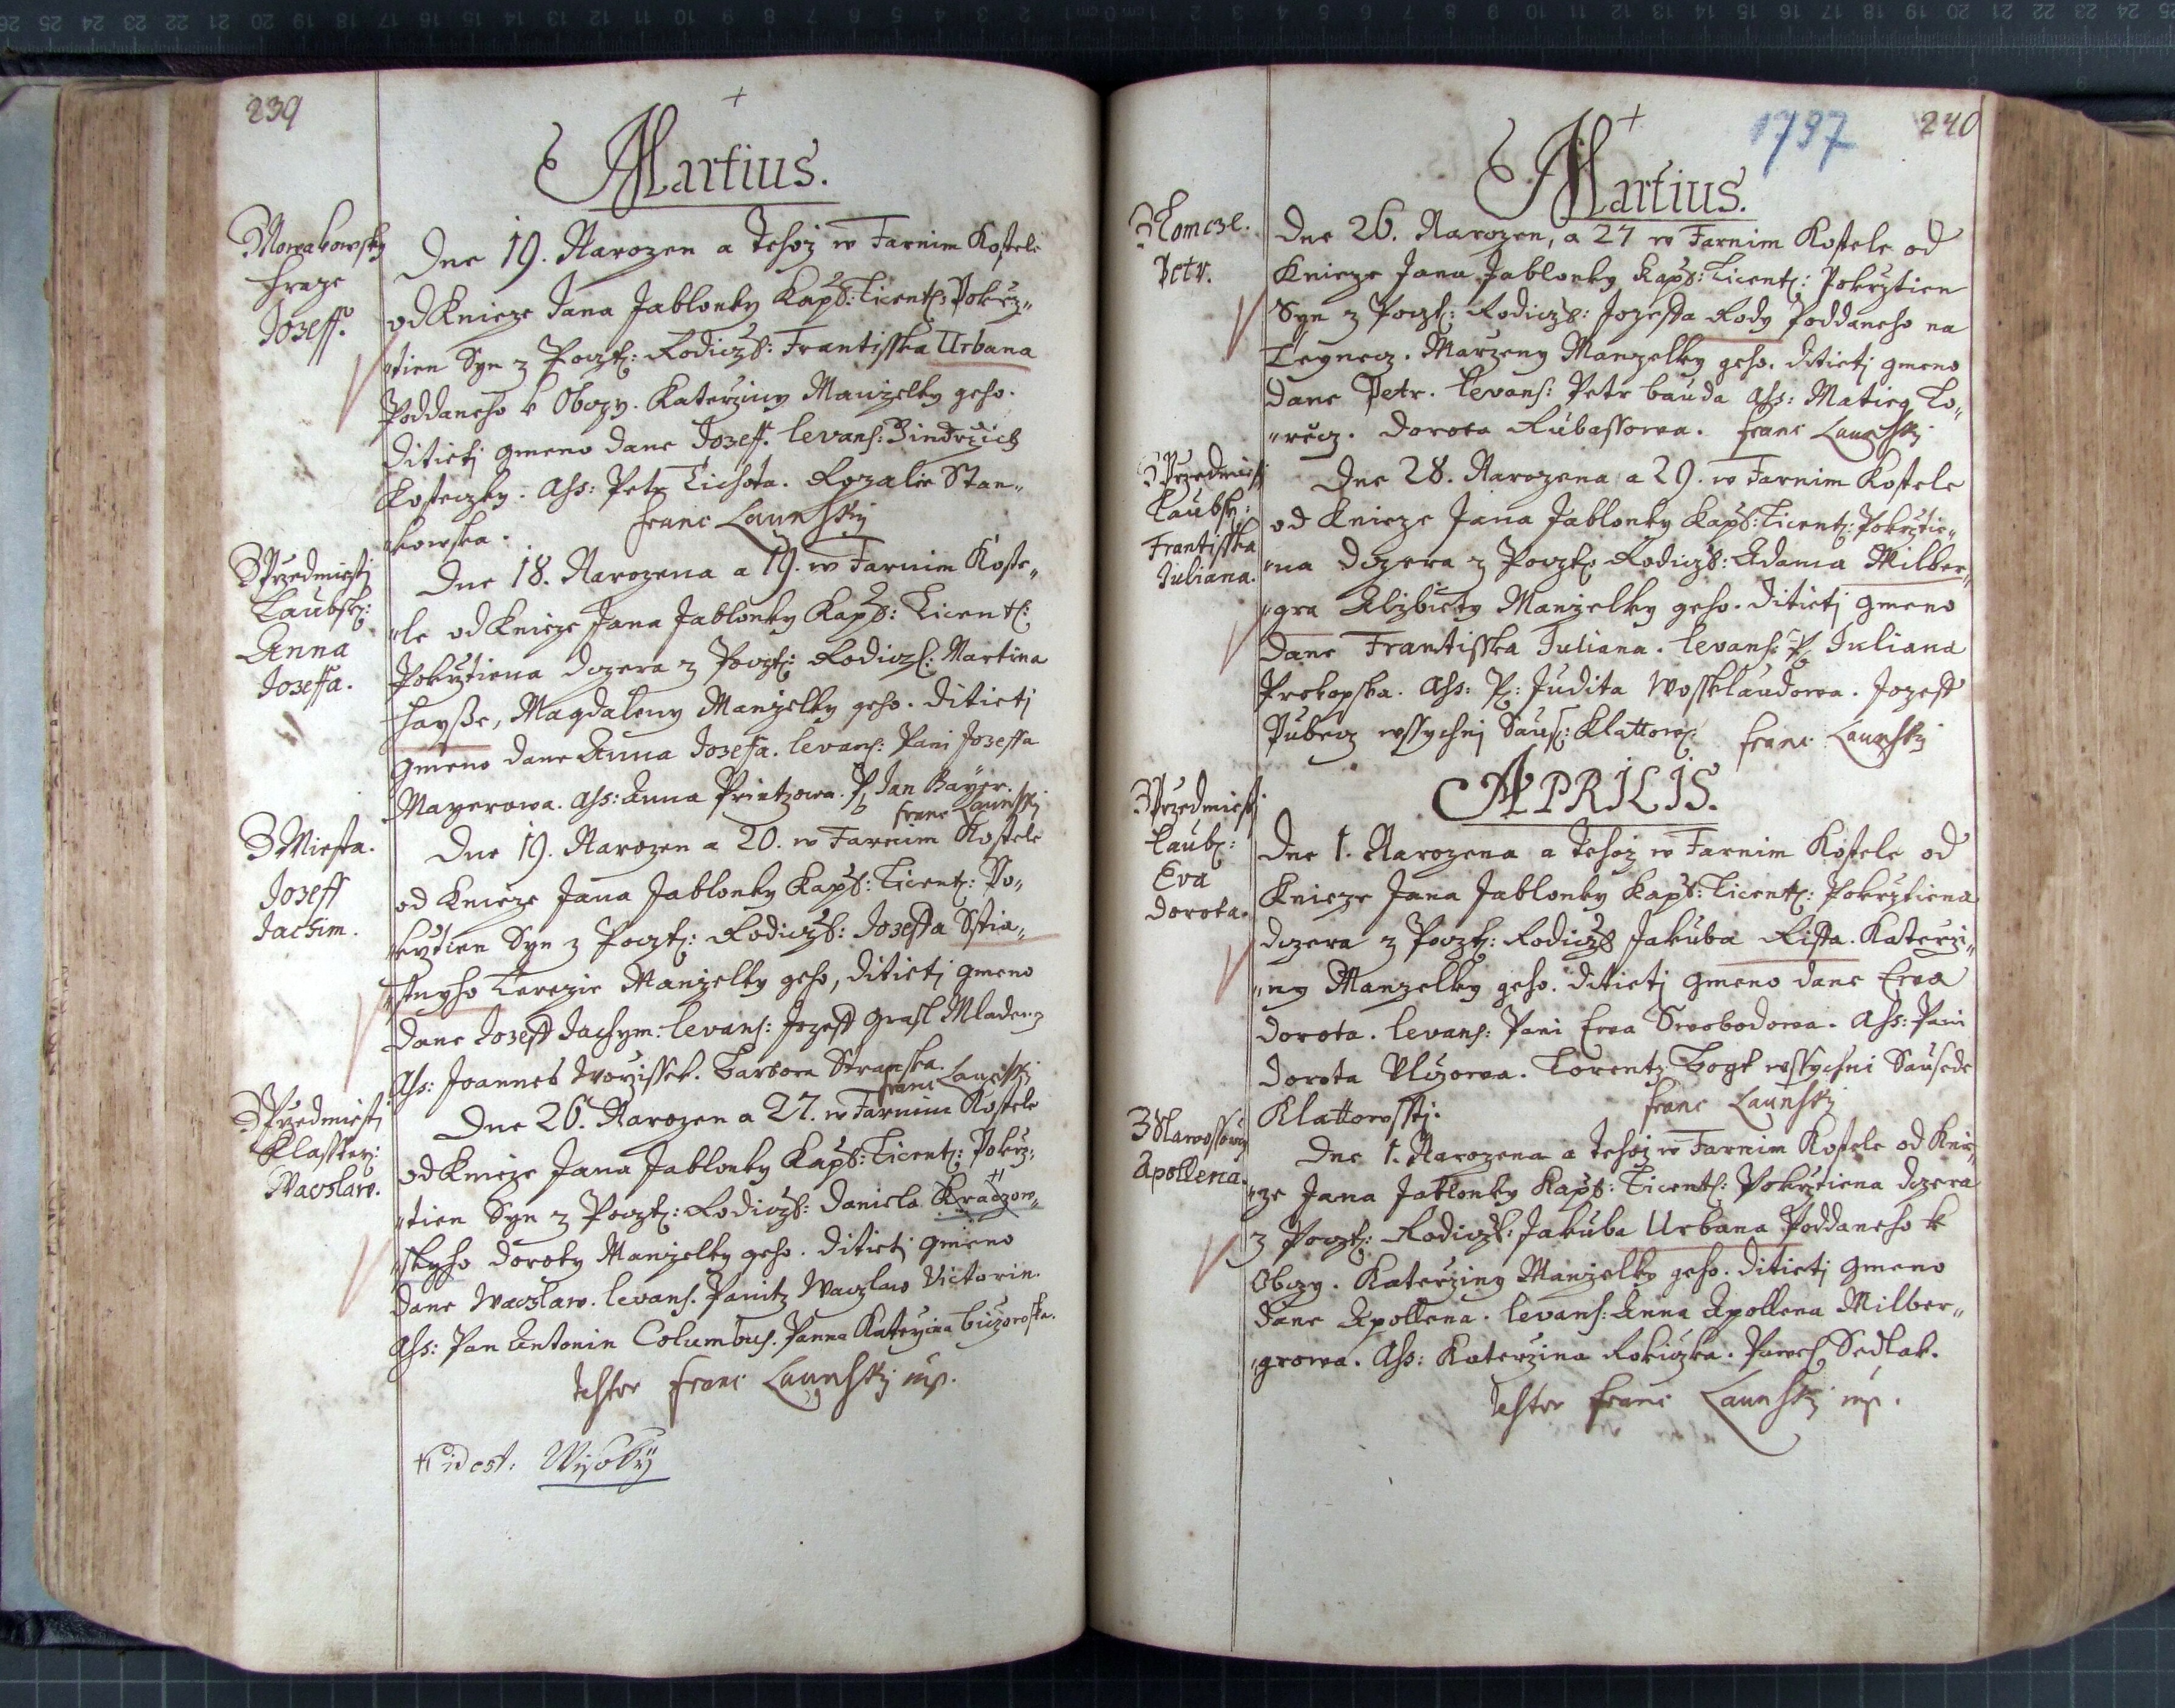 239
Martius.
Nowakowsky
Hraze
Jozeff.
Dne 19. Narozen a tehoz w Farnim Kostele
od Knieze Jana Jablonky Kapl: Licent: Pokrz„
„tien Syn z Poczt: Rodiczů: Frantisska Urbana
Poddaneho k Obczy. Katerziny Manzelky geho.
Ditieti gmeno dane Jozeff. levans: Jindrzich
Kosteczky. Ass: Petr Tichota. Rozalie Stan„
„kowska. Franc Launsky
Przedmiesti
Laubsk:
Anna
Joseffa.
Dne 18. Narozena a 19. w Farnim Koste„
„le od Knieze Jana Jablonky Kapl: Licent:
Pokrztiena dczera z Poczt: Rodicz: Martina
Haysse, Magdaleny Manzelky geho. Ditieti
gmeno dane Anna Josefa. levans: Pani Joseffa
Mayerowa. Ass: Anna Printzowa. P: Jan Bayer.
Franc Launsky
Z Miesta.
Jozeff
Jachim.
Dne 19. Narozen a 20. w Farnim Kostele
od Knieze Jana Jablonky Kapl: Licent: Po„
„krztien Syn z Poczt: Rodiczů: Jozeffa Stia„
„stnyho Terezie Manzelky geho, Ditieti gmeno
dane Jozeff Jachym. levans: Jozeff Grasl Mladenez
Ass: Joannes Worzissek. Barbora Stranska.
Franc Launsky
Przedmiesti
Klasster:
Waczlaw.
Dne 26. Narozen a 27. w Farnim Kostele
od Knieze Jana Jablonky Kapl: Licent: Pokrz„
„tien Syn z Poczt: Rodiczů: Daniela Kraczow„
„skyho Doroty Manzelky geho. Ditieti gmeno
dane Waczlaw. levans. Panitz Waczlaw Victorin.
Ass: Pan Antonin Columbus. Panna Katerzina
Testor Franc Launsky mp.
id est: Wisoky
1797 240
Martius.
Petr.
Dne 26. Narozen, a 27 w Farnim Kostele od
Knieze Jana Jablonky Kapl: Licent: Pokrztien
Syn z Poczt: Rodiczů: Jozeffa Rody Poddaneho na
Teynecz. Marzeny Manzelky geho. Ditieti gmeno
dane Petr. levans: Petr Bauda Ass: Matieg Lo„
„recz. Dorota Rubassowa. Franc Launsky
Przedmiesti
Laubsk:
Frantisska
Juliana.
Dne 28. Narozena a 29. w Farnim Kostele
od Knieze Jana Jablonky Kapl: Licent: Pokrztie„
„na dczera z Poczt: Rodiczů: Adama Milber„
„gra Alzbiety Manzelky geho. Ditieti gmeno
dane Frantisska Juliana. levans: P: Juliana
Prokopska. Ass: P: Judita Wossklaudowa. Jozeff
Pubecz wssychni Saus: Klattow: Franc Launsky
APRILIS.
Przedmiesti
Laub:
Eva
Dorota.
Dne 1. Narozena a tehoz w Farnim Kostele od
Knieze Jana Jablonky Kapl: Licent: Pokrztiena
dczera z Poczt: Rodiczů Jakuba Rissa. Katerzi„
„ny Manzelky geho. Ditieti gmeno dane Eva
Dorota. levans: Pani Ewa Swobodowa. Ass: Pani
Dorota Ulczowa. Lorentz Fogt wssychni Sausede
Klattowssti. Franc Launsky
Apollena.
Dne 1. Narozena a tehoz w Farnim Kostele od Knie„
„ze Jana Jablonky Kapl: Licent: Pokrztiena dczera
z Poczt: Rodiczů: Jakuba Urbana Poddaneho k
Obczy. Katerziny Manzelky geho. Ditieti gmeno
dane Apollena. levans: Anna Apollena Milber„
„growa. Ass: Katerzina Rokiczka. Pawel Sedlak.
Testor Franc Launsky mp.